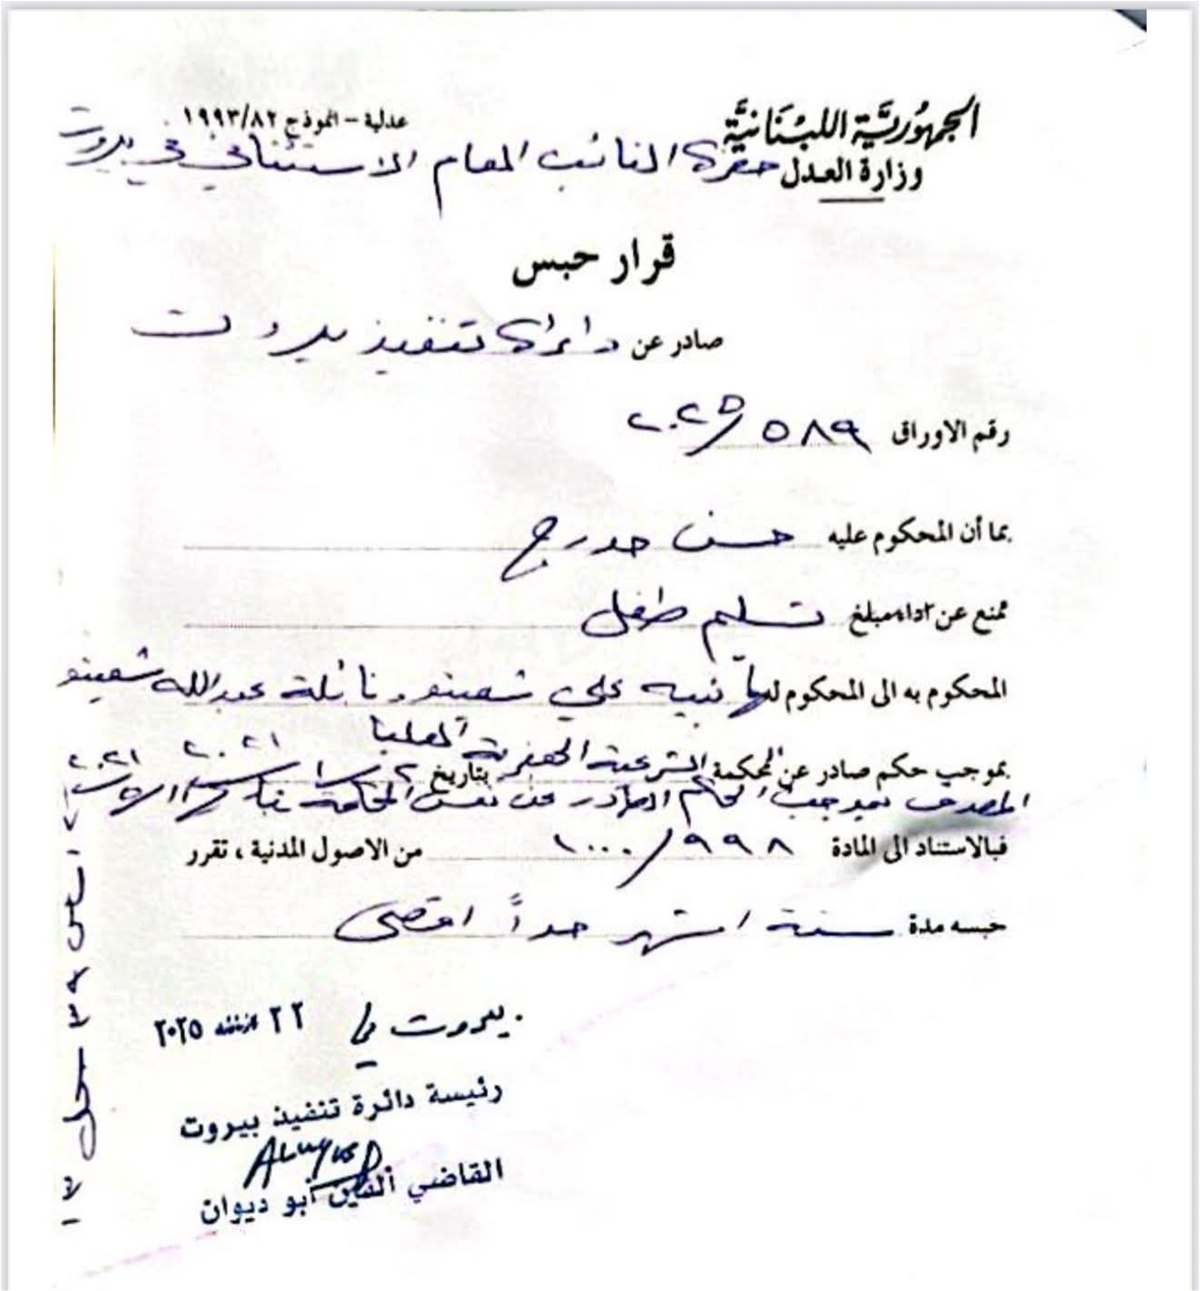 الجمهورية اللبنانية
وزارة العدل
عدلية - انموذج ١٩٩٣/٨٢
حضرة النائب العام الاستئنافي في بيروت
قرار حبس
صادر عن دائرة تنفيذ بيروت
رقم الاوراق ٥٨٩/٢٠٢٥
بما أن المحكوم عليه حسن حدرج
ممتنع عن مبلغ تسليم طفل
المحكوم به الى المحكوم لها نبيه علي شعيتو ونائلة عبدالله شعيتو
بموجب حكم صادر عن المحكمة الشرعية الجعفرية العليا بتاريخ ٢٠٢١
المصدق بموجب الحكم الصادر عن نفس المحكمة ٢٠٢١
فبالاستناد الى المادة ٩٩٨/١٠٠٠ من الاصول المدنية ، تقرر
حبسه مدة ستة اشهر حداً اقصى
بيروت في ٢٢ ٢٠٢٥
رئيسة دائرة تنفيذ بيروت
القاضي ألفين أبو ديوان